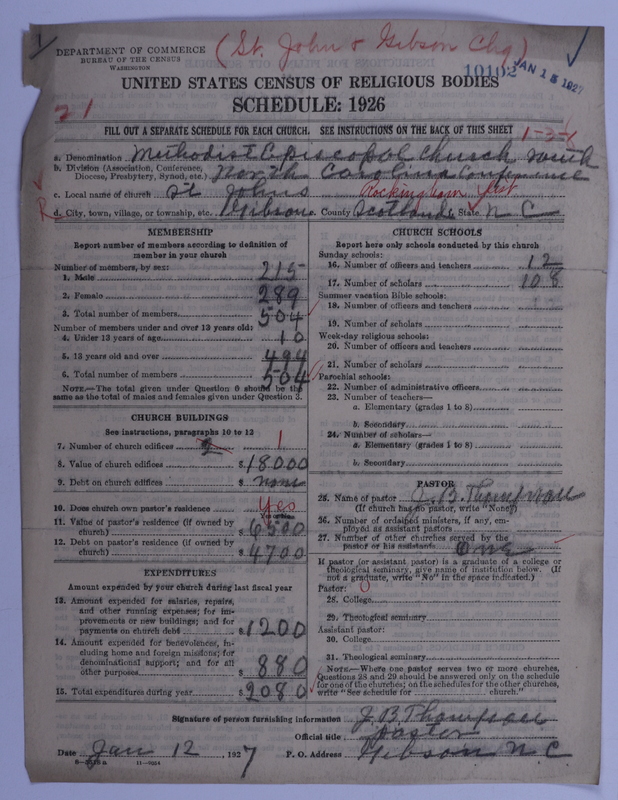 (St. John & Gibson Chg)
DEPARTMENT OF COMMERCE
BUREAU OF THE CENSUS
WASHINGTON
10102
JAN 15 1927
UNITED STATES CENSUS OF RELIGIOUS BODIES
SCHEDULE: 1926
21
FILL OUT A SEPARATE SCHEDULE FOR EACH CHURCH. SEE INSTRUCTIONS ON THE BACK OF THIS SHEET
1-3-8
a. Denomination Methodist Episcopal Church South
b. Division (Association, Conference, Diocese, Presbytery, Synod, etc.) North Carolina Conference
c. Local name of church St Johns Rockingham Dist
R
d. City, town, village, or township, etc. Gibson e. County Scotland State N C
MEMBERSHIP
Report number of members according to definition of
member in your church
Number of members, by sex:
1. Male 215
2. Female 289
3. Total number of members 504
Number of members under and over 13 years old:
4. Under 13 years of age 10
5. 13 years old and over 494
6. Total number of members 504
NOTE.—The total given under Question 6 should be the
same as the total of males and females given under Question 3.
CHURCH BUILDINGS
See instructions, paragraphs 10 to 12
7. Number of church edifices 1
8. Value of church edifices $18000
9. Debt on church edifices $ none
10. Does church own pastor's residence Yes
11. Value of pastor's residence (if owned by
church) $6500
12. Debt on pastor's residence (if owned by
church) $4700
EXPENDITURES
Amount expended by your church during last fiscal year
13. Amount expended for salaries, repairs,
and other running expenses; for im-
provements or new buildings; and for
payments on church debt $1200
14. Amount expended for benevolences, in-
cluding home and foreign missions; for
denominational support; and for all
other purposes $880
15. Total expenditures during year $2080
CHURCH SCHOOLS
Report here only schools conducted by this church
Sunday schools:
16. Number of officers and teachers 12
17. Number of scholars 108
Summer vacation Bible schools:
18. Number of officers and teachers
19. Number of scholars
Week-day religious schools:
20. Number of officers and teachers
21. Number of scholars
Parochial schools:
22. Number of administrative officers
23. Number of teachers—
a. Elementary (grades 1 to 8)
b. Secondary
24. Number of scholars—
a. Elementary (grades 1 to 8)
b. Secondary
PASTOR
25. Name of pastor J. B. Thompson
(If church has no pastor, write "None")
26. Number of ordained ministers, if any, em-
ployed as assistant pastors
27. Number of other churches served by the
pastor or his assistants One
If pastor (or assistant pastor) is a graduate of a college or
theological seminary, give name of institution below. (If
not a graduate, write "No" in the space indicated.)
Pastor: 0
28. College
29. Theological seminary
Assistant pastor:
30. College
31. Theological seminary
NOTE.—Where one pastor serves two or more churches,
Questions 28 and 29 should be answered only on the schedule
for one of the churches; on the schedules for the other churches,
write "See schedule for church."
Signature of person furnishing information J. B. Thompson
Official title Pastor
Date Jan 12, 1927 P. O. Address Gibson N C
11—9024